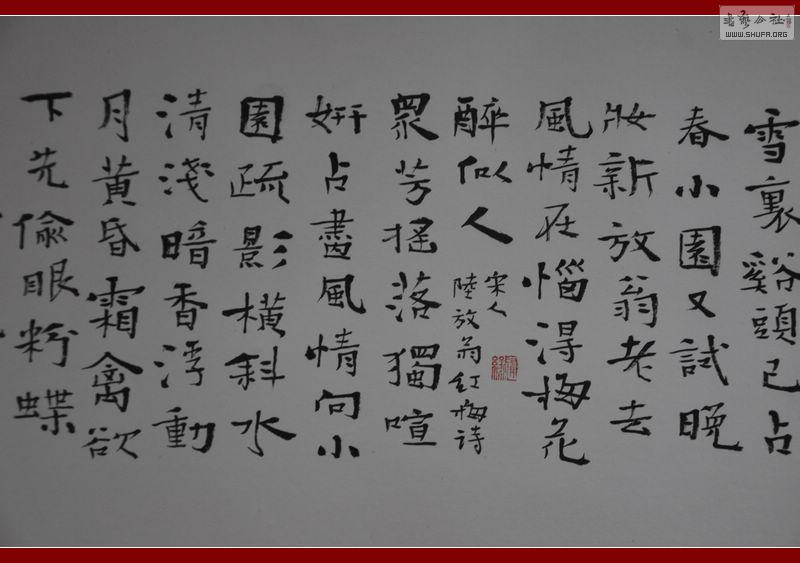 雪裏谿頭已占
春小園又試晚
妝新放翁老去
風情在惱得梅花
醉似人
宋人
陸放翁紅梅詩
眾芳搖落獨喧
妍占盡風情向小
園疏影橫斜水
清淺暗香浮動
月黃昏霜禽欲
下先偷眼粉蝶
WWW.SHUFA.ORG